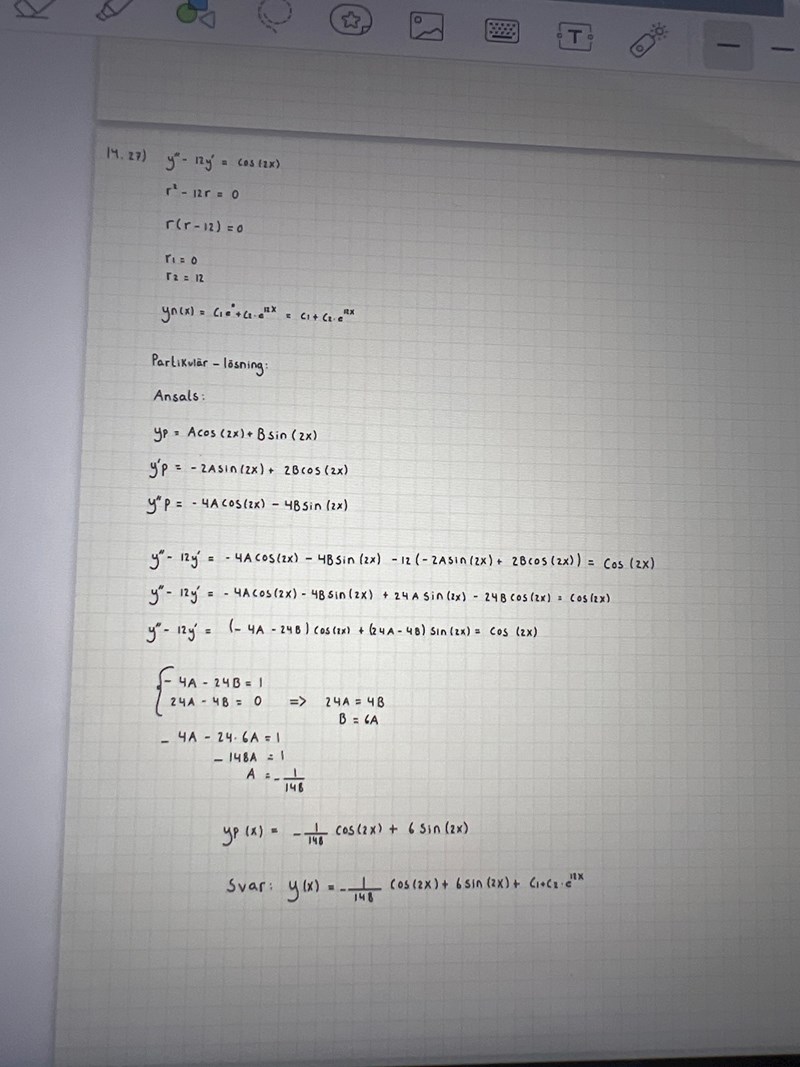 T
14.27) y'' - 12y' = cos(2x)
r² - 12r = 0
r(r-12) = 0
r₁ = 0
r₂ = 12
yn(x) = C₁e° + C₂·e^12x = C₁ + C₂·e^12x
Partikulär - lösning:
Ansals:
yp = Acos(2x) + Bsin(2x)
y'p = -2Asin(2x) + 2Bcos(2x)
y''p = -4Acos(2x) - 4Bsin(2x)
y'' - 12y' = -4Acos(2x) - 4Bsin(2x) - 12(-2Asin(2x) + 2Bcos(2x)) = Cos(2x)
y'' - 12y' = -4Acos(2x) - 4Bsin(2x) + 24Asin(2x) - 24Bcos(2x) = cos(2x)
y'' - 12y' = (-4A - 24B)cos(2x) + (24A - 4B)sin(2x) = cos(2x)
{ -4A - 24B = 1
24A - 4B = 0 => 24A = 4B
B = 6A
-4A - 24·6A = 1
-148A = 1
A = -1/148
yp(x) = -1/148 cos(2x) + 6sin(2x)
Svar: y(x) = -1/148 cos(2x) + 6sin(2x) + C₁+C₂·e^12x